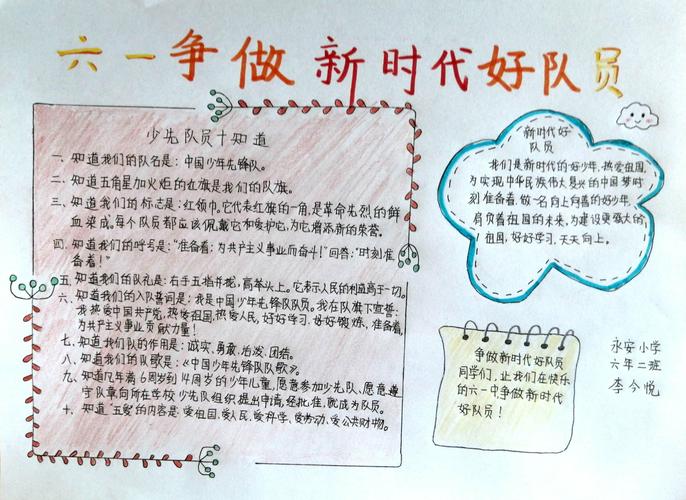 六一争做新时代好队员
少先队员十知道
一、知道我们的队名是：中国少年先锋队。
二、知道五角星加火炬的红旗是我们的队旗。
三、知道我们的标志是：红领巾。它代表红旗的一角，是革命先烈的鲜
血染成。每个队员都应该佩戴它和爱护它，为它增添新的荣誉。
四、知道我们的呼号是：“准备着；为共产主义事业而奋斗！”回答：“时刻准
备着！”
五、知道我们的队礼是：右手五指并拢，高举头上。它表示人民的利益高于一切。
六、知道我们的入队誓词是：我是中国少年先锋队队员。我在队旗下宣誓：
我热爱中国共产党，热爱祖国，热爱人民，好好学习，好好锻炼，准备着，
为共产主义事业贡献力量！
七、知道我们队的作用是：诚实、勇敢、活泼、团结。
八、知道我们的队歌是：《中国少年先锋队队歌》。
九、知道凡年满6周岁到14周岁的少年儿童，愿意参加少先队、愿意遵
守队章向所在学校少先队组织提出申请，经批准，就成为队员。
十、知道“五爱”的内容是：爱祖国、爱人民、爱科学、爱劳动、爱公共财物。
新时代好
队员
我们是新时代的好少年，热爱祖国，
为实现中华民族伟大复兴的中国梦时
刻准备着，做一名向上向善的好少年，
肩负着祖国的未来，为建设更强大的
祖国，好好学习，天天向上。
争做新时代好队员
同学们，让我们在快乐
的六一中争做新时代
好队员！
永安小学
六年二班
李今悦